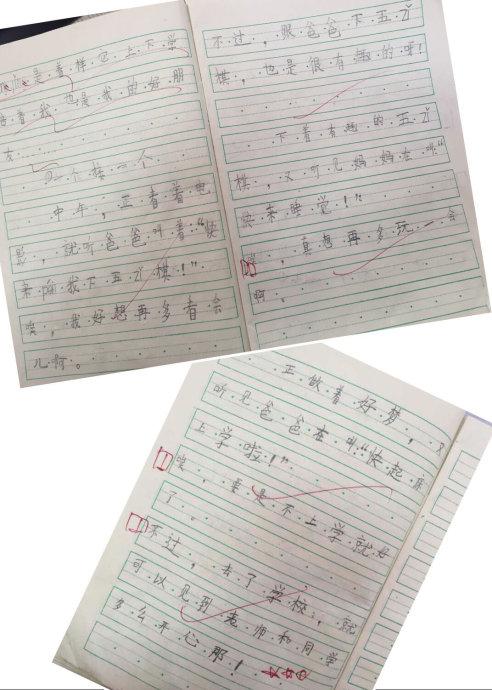 是着样它上下学
着我,也是我的好朋
友。
一个接一个
中午,正看着电
影,就听爸爸叫着:“快
来陪我下五子棋!”
唉,我好想再多看会
儿啊。
不过,跟爸爸下五子
棋,也是很有趣的呀!
下着有趣的五子
棋,又听见妈妈在叫:“
快来睡觉!”
唉,真想再多玩一会
啊。
正做着好梦,又
听见爸爸在叫:“快起床
上学啦!”
唉,要是不上学就好
了。
不过,去了学校,就
可以见到老师和同学
多么开心那!